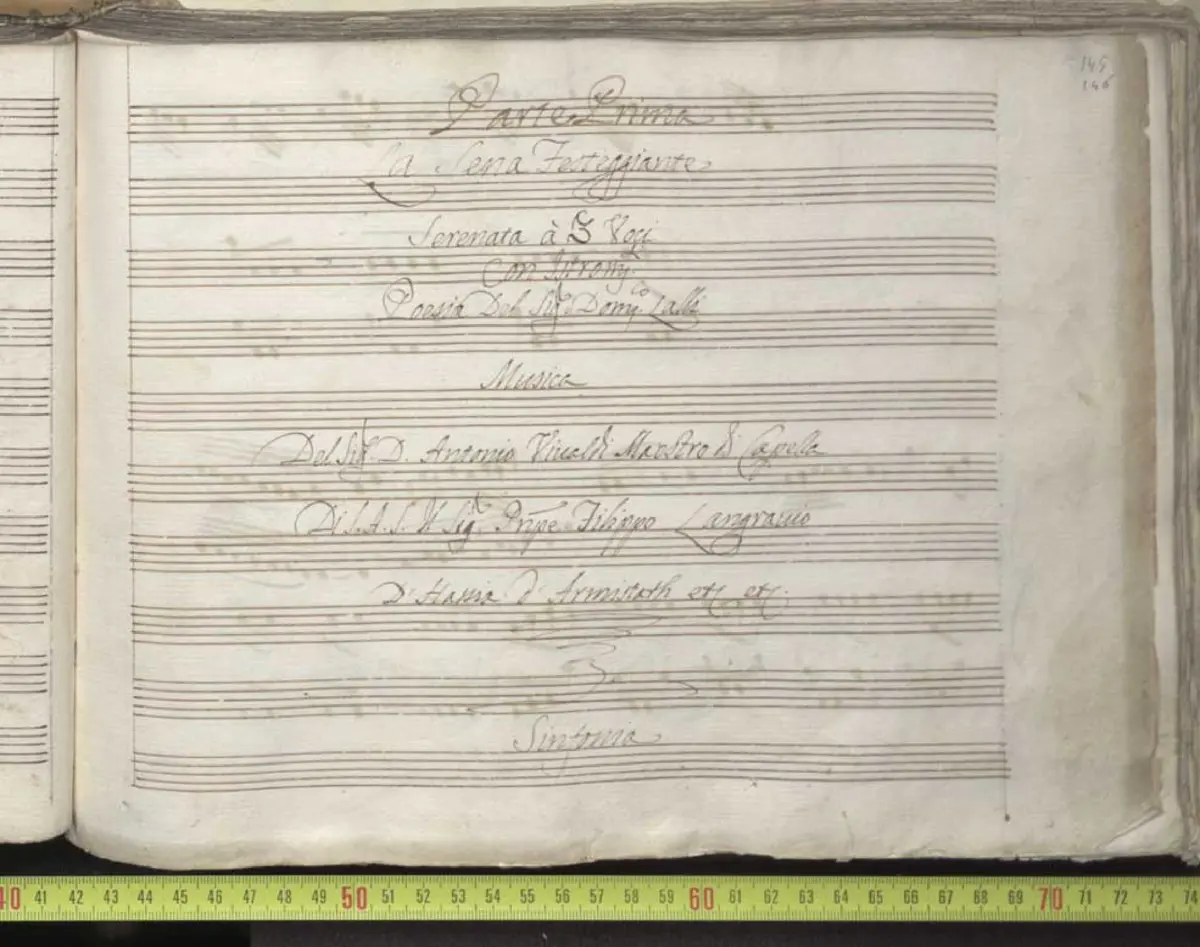 145
146
Parte Prima
La Sena Festeggiante
Serenata à 3 Voci
Con Istromti.
Poesia Del Sigr. Domco. Lalli
Musica
Del Sigr D. Antonio Vivaldi Maestro di Capella
Di S. A. S. Il Sigr. Pnpe Filippo Langravio
D'Hassia d'Armistath etc etc.
Sinfonia
40 41 42 43 44 45 46 47 48 49 50 51 52 53 54 55 56 57 58 59 60 61 62 63 64 65 66 67 68 69 70 71 72 73 74